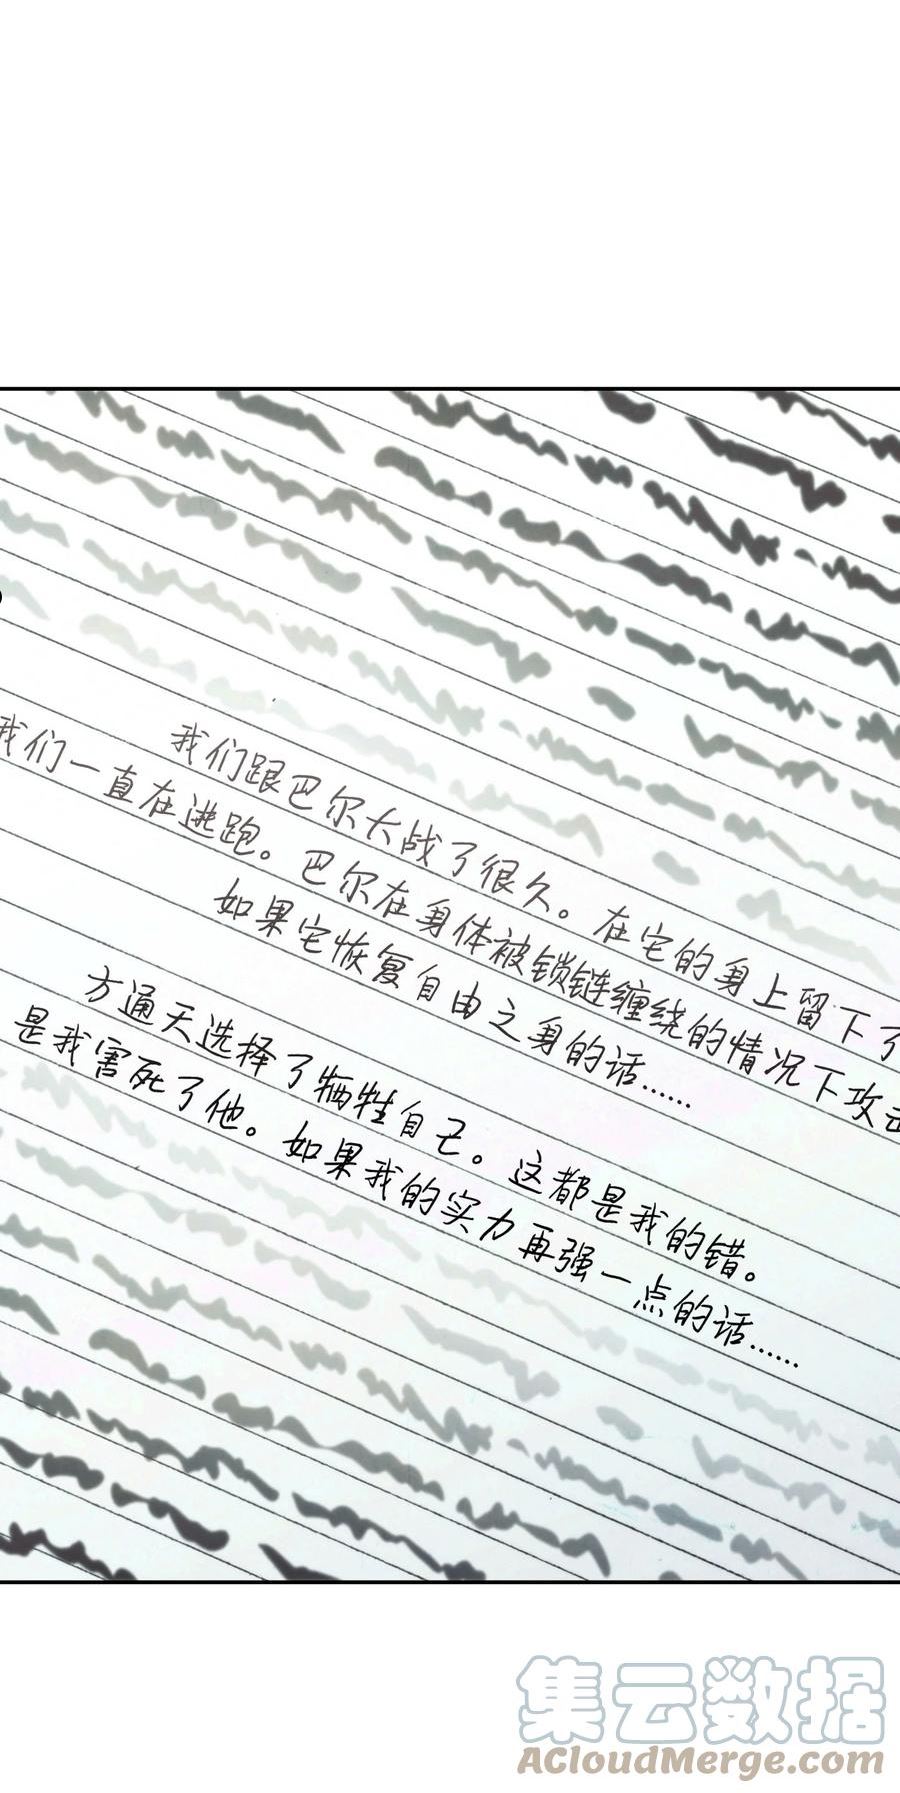 我们跟巴尔大战了很久。在它的身上留下了
我们一直在逃跑。巴尔在身体被锁链缠绕的情况下攻击
如果它恢复自由之身的话……
方通天选择了牺牲自己。这都是我的错。
是我害死了他。如果我的实力再强一点的话……
集云数据
ACloudMerge.com